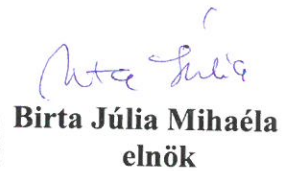 Birta Júlia
Birta Júlia Mihaéla
elnök